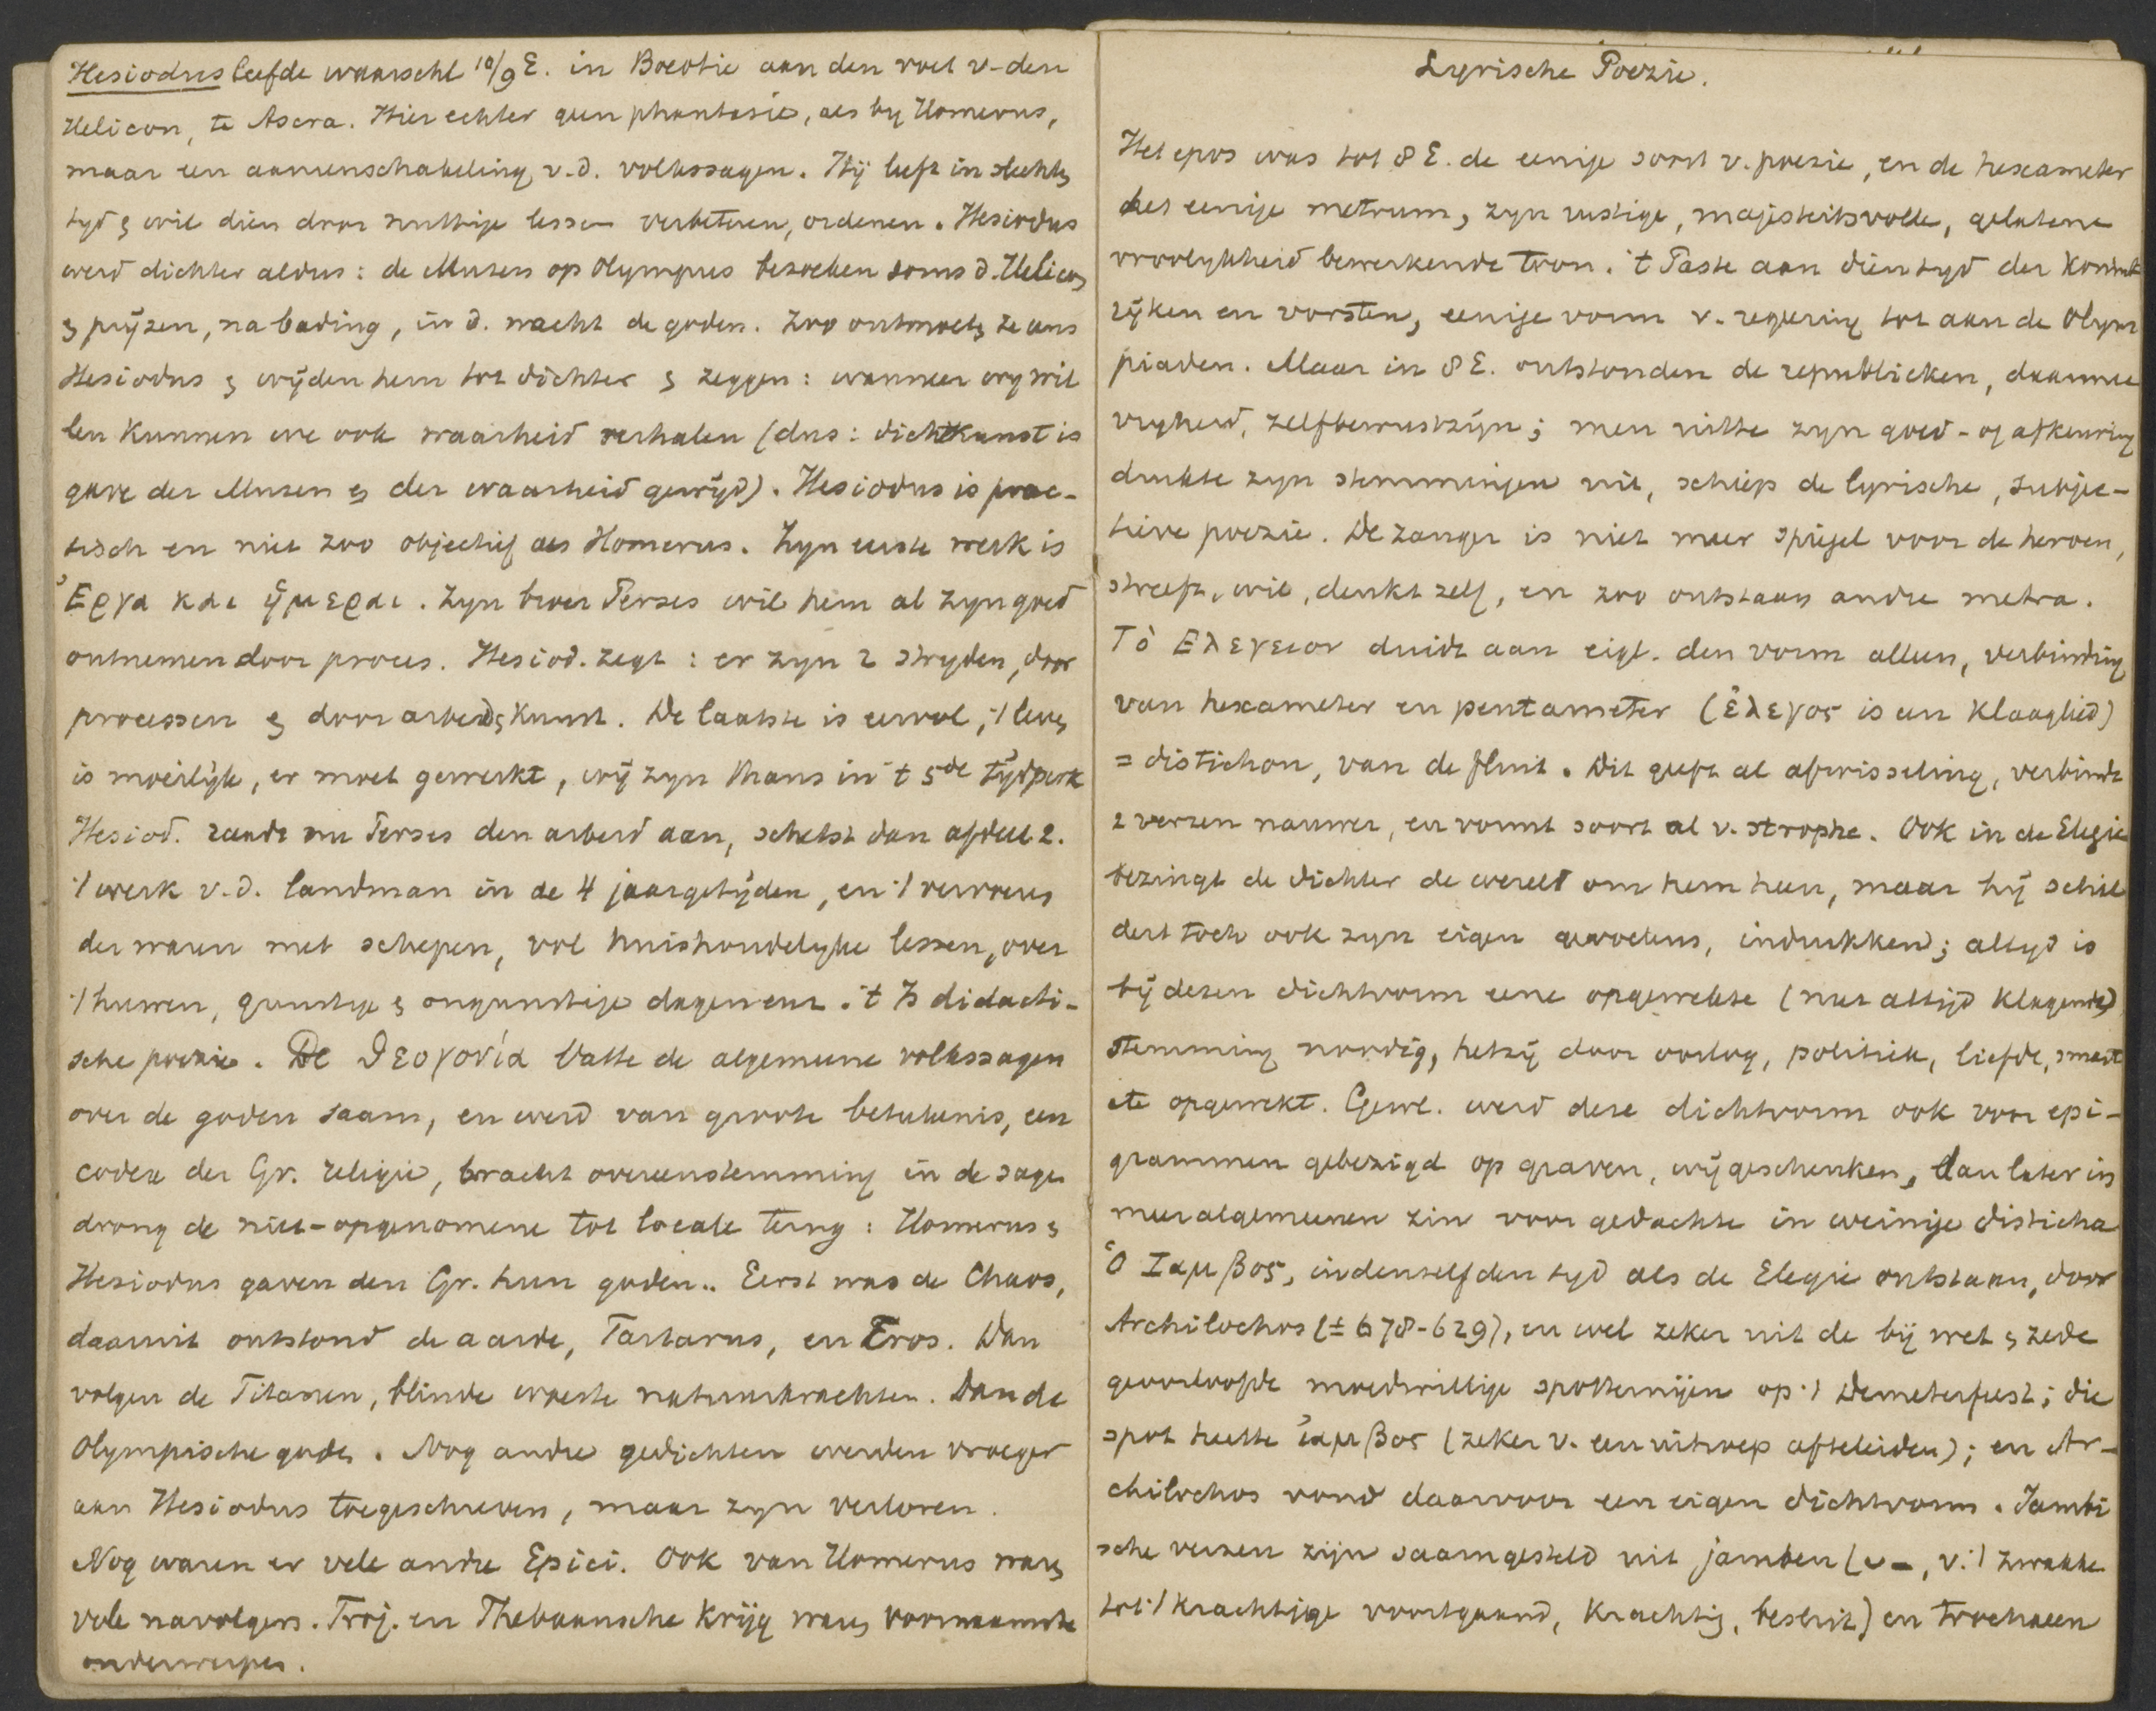 Hesiodus leefde waarschl 10/9 E. in Boeotie aan den voet v. den
Helicon, te Ascra. Hier echter geen phantasie, als by Homerus,
maar een aaneenschakeling v.d. volkssagen. Hij leeft in slechts
tyd & wil dien door nuttige lessen verbeteren, ordenen. Hesiodus
werd dichter aldus: de Muzen op Olympus bezoeken soms d. Helicon
& prijzen, na bading, in d. nacht de goden. Zoo ontmoets ze ons
Hesiodus & wijden hem tot dichter & zeggen: wanneer wy wil
len kunnen we ook waarheid verhalen (dus: dichtkunst is
gave der Muzen & der waarheid gewijd). Hesiodus is prac-
tisch en niet zoo objectief als Homerus. Zyn eerste werk is
Ἔργα και ἡμεραι. Zyn broer Perses wil hem al zyn goed
ontnemen door proces. Hesiod. zegt: er zyn 2 stryden, door
processen & door arbeid & kunst. De laatste is eervol, 't leven
is moeilijk, er moet gewerkt, wij zyn thans in 't 5de tijdperk
Hesiod. raadt nu Perses den arbeid aan, schetst dan afdeel 2.
't werk v.d. landman in de 4 jaargetijden, en 't vervoer
der waren met schepen, vol huishoudelyke lessen, over
't huwen, gunstige & ongunstige dagen enz. 't Is didacti-
sche poezie. De Θεογονία vatte de algemeene volkssagen
over de goden saam, en werd van groote beteekenis, een
codex der Gr. religie, bracht overeenstemming in de sage
drong de niet-opgenomene tot locale terug: Homerus &
Hesiodus gaven den Gr. hun goden.. Eerst was de Chaos,
daaruit ontstond de aarde, Tartarus, en Eros. Dan
volgen de Titanen, blinde woeste natuurkrachten. Dan de
Olympische goden. Nog andre gedichten werden vroeger
aan Hesiodus toegeschreven, maar zyn verloren.
Nog waren er vele andre Epici. Ook van Homerus waren
vele navolgers. Troj. en Thebaansche krijg waren voornaamste
onderwerpen.
Lyrische Poezie.
Het epos was tot 8 E. de eenige soort v. poezie, en de hexameter
het eenige metrum, zyn rustige, majesteitsvolle, gelatene
vroolykheid bewerkende toon. 't Paste aan dien tyd der Konink
rijken en vorsten, eenige vorm v. regeering tot aan de Olym
piaden. Maar in 8 E. ontstonden de republieken, daarmee
vryheid, zelfbewustzijn; men uitte zyn goed- of afkeuring
drukte zyn stemmingen uit, schiep de lyrische, subjec-
tieve poezie. De zanger is niet meer spiegel voor de heroen,
streeft, wil, denkt zelf, en zoo ontstaan andre metra.
Τὸ Ελεγειον duidt aan eigl. den vorm alleen, verbinding
van hexameter en pentameter (ἔλεγος is een klaaglied)
= distichon, van de fluit. Dit geeft al afwisseling, verbindt
2 verzen nauwer, en vormt soort al v. strophe. Ook in de Elegie
bezingt de dichter de wereld om hem heen, maar hij schil
dert toch ook zyn eigen gevoelens, indrukken; altyd is
bij dezen dichtvorm eene opgewekte (niet altijd klagende)
stemming noodig, hetzij door oorlog, politiek, liefde, smart
etc opgewekt. Gewl. werd deze dichtvorm ook voor epi-
grammen gebezigd op graven, wijgeschenken, dan later in
meer algemeenen zin voor gedachte in weinige disticha
Ὁ Ιαμβος, in denzelfden tyd als de Elegie ontstaan, door
Archilochos (± 678-629), en wel zeker uit de bij wet & zede
geoorloofde moedwillige spotternijen op 't Demeterfeest; die
spot heette ἴαμβος (zeker v. een uitroep afteleiden); en Ar-
chilochos vond daarvoor een eigen dichtvorm. Jambi
sche verzen zijn saamgesteld uit jamben (◡–, v. 't zwakke
tot 't krachtige voortgaand, krachtig, besluit) en trochaeen